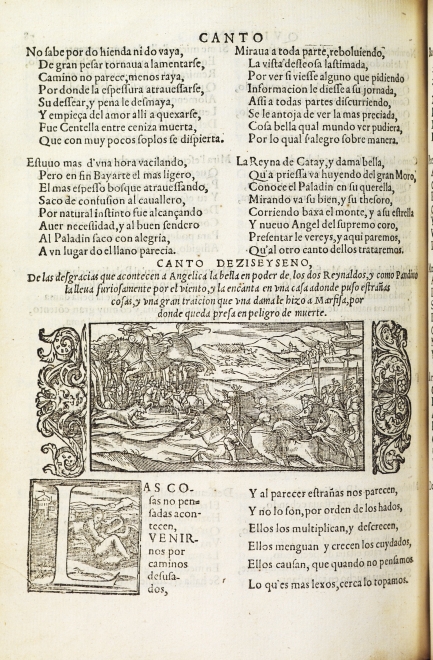 CANTO
No sabe por do hienda ni do vaya,
De gran pesar tornaua a lamentarse,
Camino no parece, menos raya,
Por donde la espessura atrauessarse,
Su dessear, y pena le desmaya,
Y empieça del amor alli a quexarse,
Fue Centella entre ceniza muerta,
Que con muy pocos soplos se dispierta.
Estuuo mas d'vna hora vacilando,
Pero en fin Bayarte el mas ligero,
El mas espesso bosque atrauessando,
Saco de confusion al cauallero,
Por natural instinto fue alcançando
Auer necessidad, y al buen sendero
Al Paladin saco con alegria,
A vn lugar do el llano parecia.
Miraua a toda parte, reboluiendo,
La vista desseosa lastimada,
Por ver si viesse alguno que pidiendo
Informacion le diesse a su jornada,
Assi a todas partes discurriendo,
Se le antoja de ver la mas preciada,
Cosa bella qual mundo ver pudiera,
Por lo qual s'alegro sobre manera.
La Reyna de Catay, y dama bella,
Qu'a priessa va huyendo del gran Moro,
Conoce el Paladin en su querella,
Mirando va su bien, y su thesoro,
Corriendo baxa el monte, y a su estrella
Y nueuo Angel del supremo coro,
Presentar le vereys, y aqui paremos,
Qu'al otro canto dellos trataremos.
CANTO DEZISEYSENO,
De las desgracias que acontecen a Angelica la bella en poder de los dos Reynaldos, y como
la lleua furiosamente por el viento, y la encanta en vna casa adonde puso estrañas
cosas, y vna gran traicion que vna dama le hizo a Marfisa, por
donde queda presa en peligro de muerte.
LAS CO-
sas no pen-
sadas acon-
tecen,
VENIR-
nos por
caminos
desusa-
dos,
Y al parecer estrañas nos parecen,
Y no lo son, por orden de los hados,
Ellos los multiplican, y descrecen,
Ellos menguan y crecen los cuydados,
Ellos causan, que quando no pensamos
Lo qu'es mas lexos, cerca lo topamos.